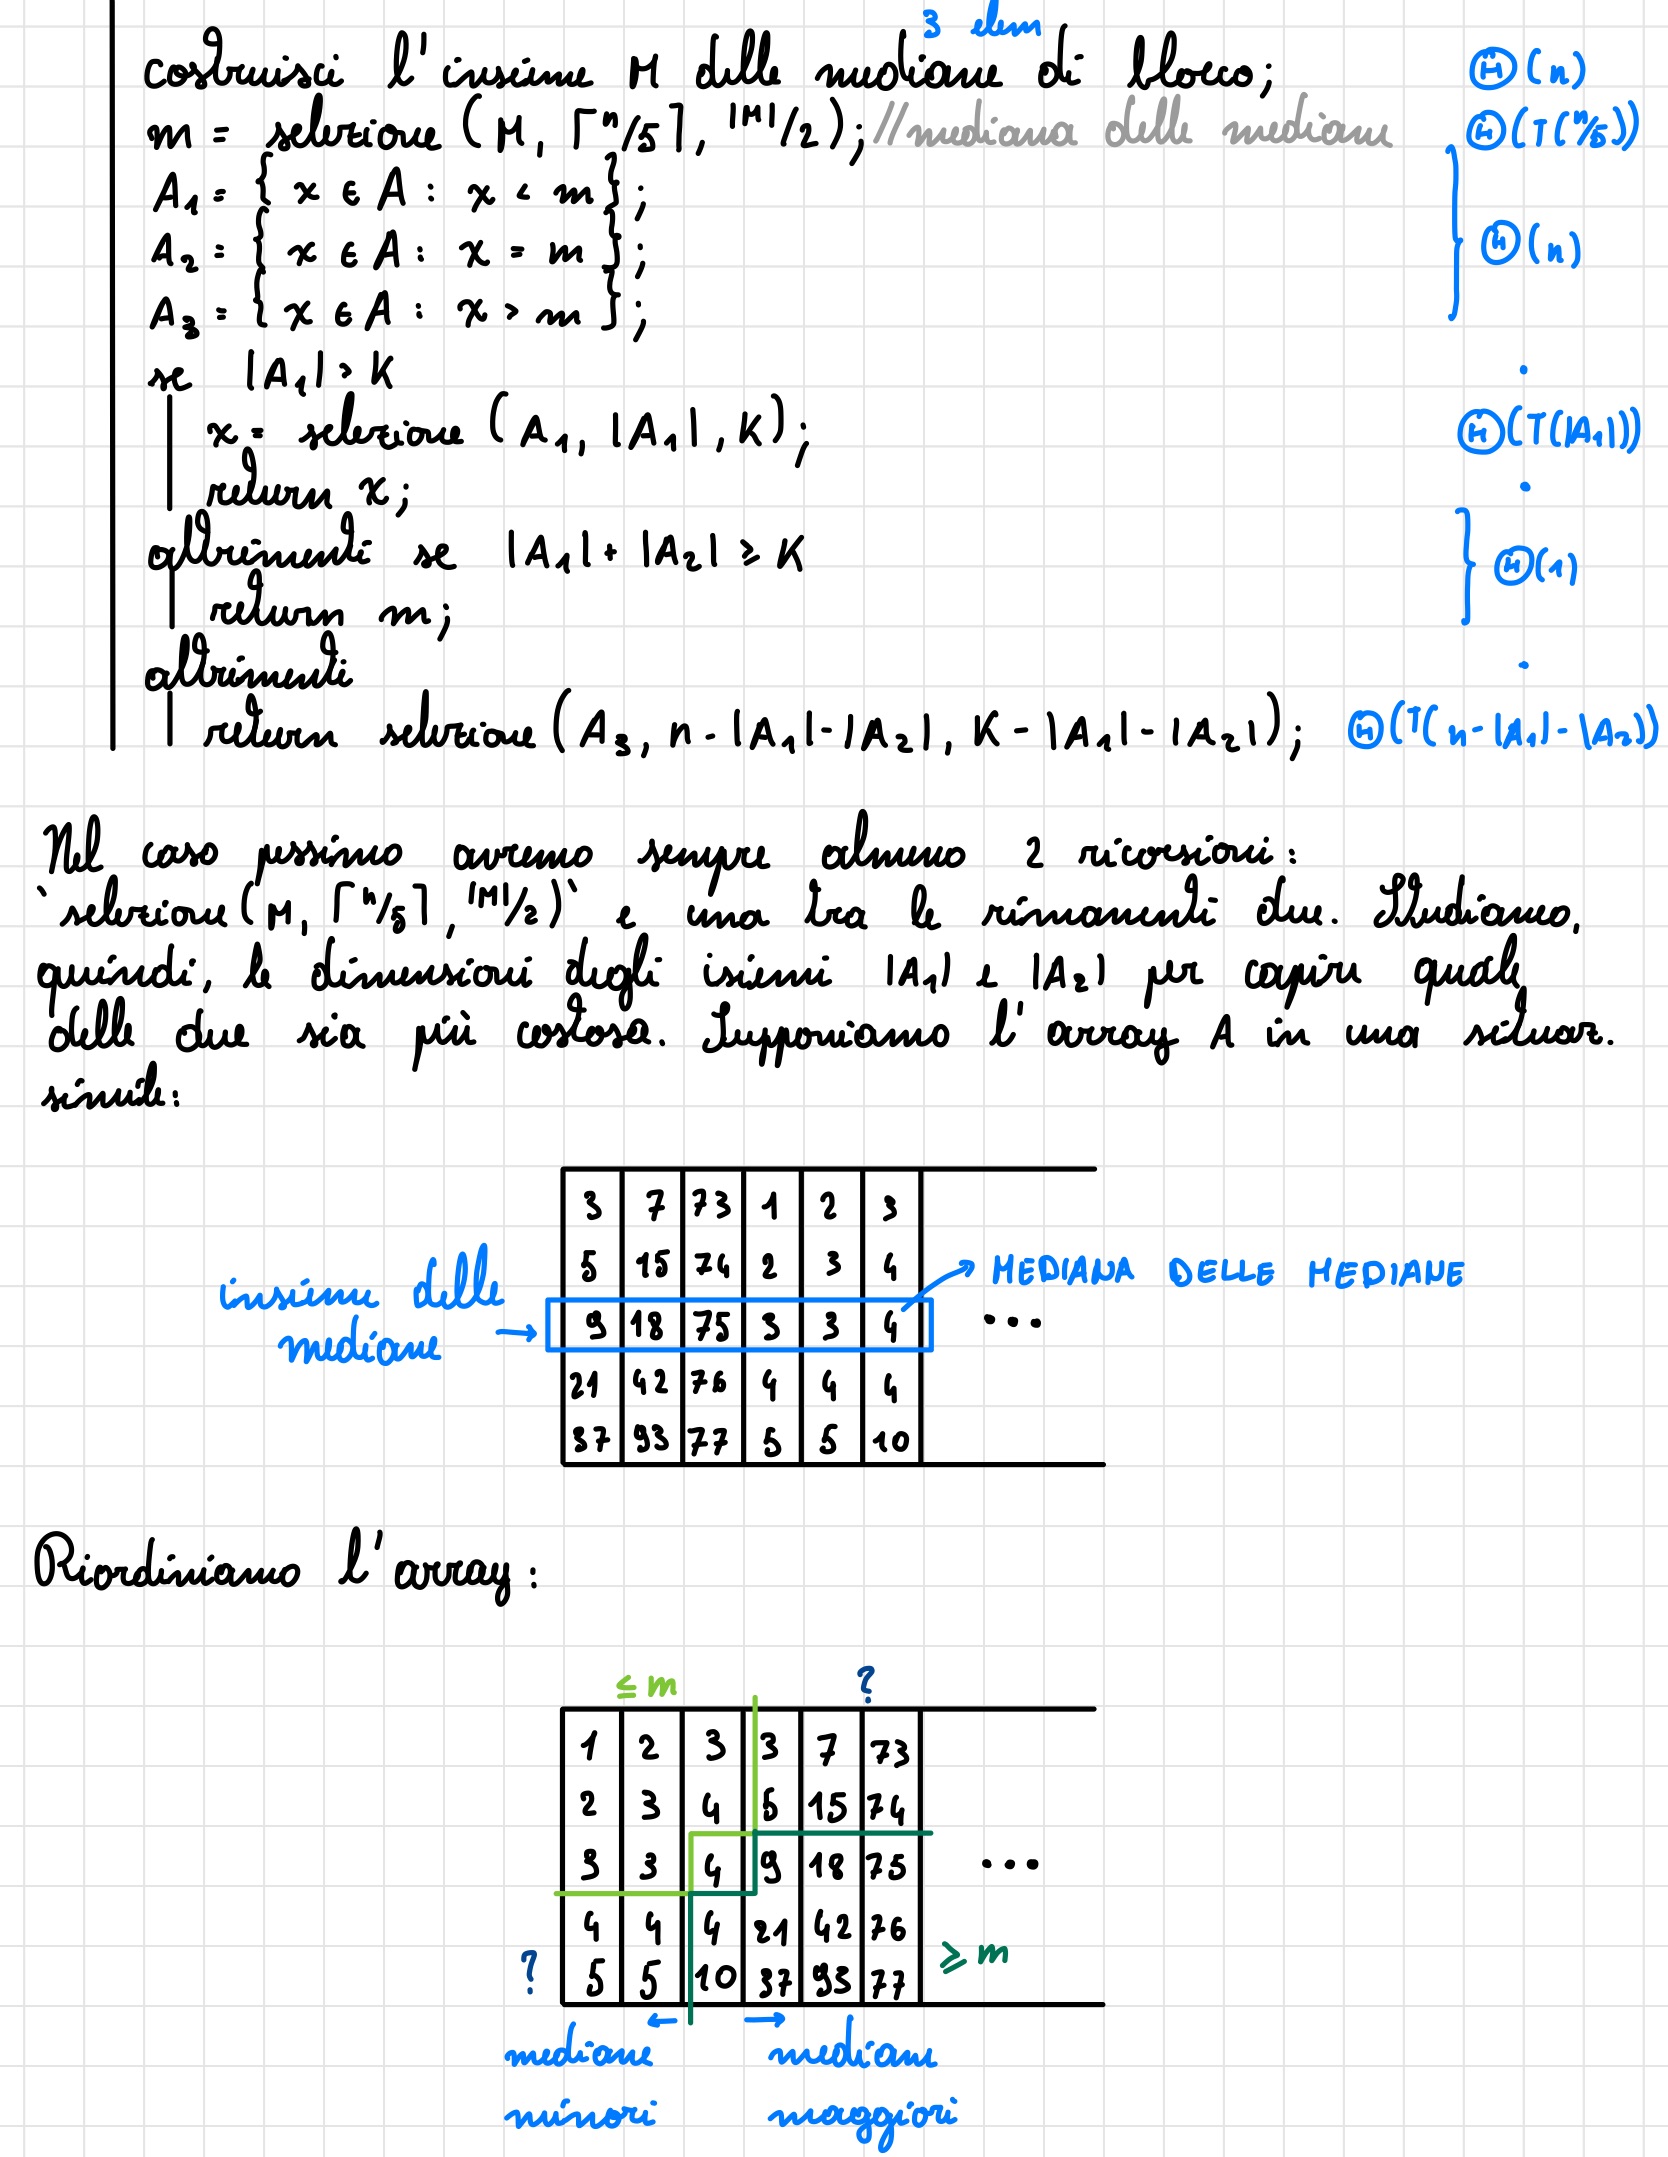 3 elem
costruisci l'insieme M delle mediane di blocco; Θ(n)
m = selezione (M, ⌈n/5⌉, |M|/2); //mediana delle mediane Θ(T(n/5))
A₁ = { x ∈ A : x < m };
A₂ = { x ∈ A : x = m }; Θ(n)
A₃ = { x ∈ A : x > m };
se |A₁| > K
x = selezione (A₁, |A₁|, K); Θ(T(|A₁|))
return x;
altrimenti se |A₁| + |A₂| ≥ K Θ(1)
return m;
altrimenti
return selezione (A₃, n - |A₁| - |A₂|, K - |A₁| - |A₂|); Θ(T(n - |A₁| - |A₂|))
Nel caso pessimo avremo sempre almeno 2 ricorsioni:
`selezione (M, ⌈n/5⌉, |M|/2)` e una tra le rimanenti due. Studiamo,
quindi, le dimensioni degli isiemi |A₁| e |A₂| per capire quale
delle due sia più costosa. Supponiamo l'array A in una situaz.
simile:
3 7 73 1 2 3
5 15 74 2 3 4 MEDIANA DELLE MEDIANE
insieme delle
mediane → 9 18 75 3 3 4 ...
21 42 76 4 4 4
37 93 77 5 5 10
Riordiniamo l'array:
≤ m ?
1 2 3 3 7 73
2 3 4 5 15 74
3 3 4 9 18 75 ...
4 4 4 21 42 76
? 5 5 10 37 93 77 ≥ m
← →
mediane mediane
minori maggiori